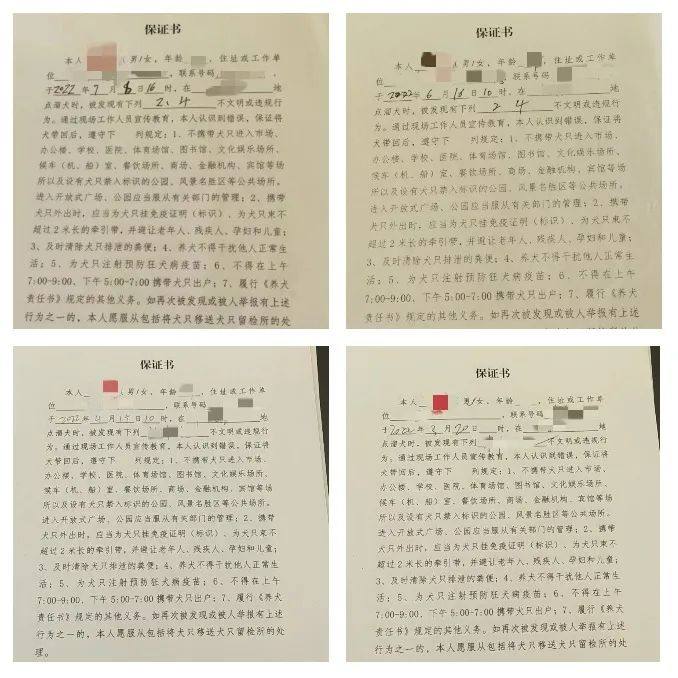 保证书
本人 男/女，年龄 ，住址或工作单
位 ，联系号码
于2022年7月8日16时，在 地
点溜犬时，被发现有下列 2、4 不文明或违规行
为。通过现场工作人员宣传教育，本人认识到错误，保证将
犬带回后，遵守下 列规定：1、不携带犬只进入市场、
办公楼、学校、医院、体育场馆、图书馆、文化娱乐场所、
候车（机、船）室、餐饮场所、商场、金融机构、宾馆等场
所以及设有犬只禁入标识的公园、风景名胜区等公共场所。
进入开放式广场、公园应当服从有关部门的管理；2、携带
犬只外出时，应当为犬只挂免疫证明（标识）、为犬只束不
超过2米长的牵引带，并避让老年人、残疾人、孕妇和儿童；
3、及时清除犬只排泄的粪便；4、养犬不得干扰他人正常生
活；5、为犬只注射预防狂犬病疫苗；6、不得在上午
7:00-9:00、下午5:00-7:00携带犬只出户；7、履行《养犬
责任书》规定的其他义务。如再次被发现或被人举报有上述
行为之一的，本人愿服从包括将犬只移送犬只留检所的处
保证书
本人 男/女，年龄 ，住址或工作单
位 ，联系号码
于2022年6月18日10时，在 地
点溜犬时，被发现有下列 2 4 不文明或违规行
为。通过现场工作人员宣传教育，本人认识到错误，保证将
犬带回后，遵守下 列规定：1、不携带犬只进入市场、
办公楼、学校、医院、体育场馆、图书馆、文化娱乐场所、
候车（机、船）室、餐饮场所、商场、金融机构、宾馆等场
所以及设有犬只禁入标识的公园、风景名胜区等公共场所。
进入开放式广场、公园应当服从有关部门的管理；2、携带
犬只外出时，应当为犬只挂免疫证明（标识）、为犬只束不
超过2米长的牵引带，并避让老年人、残疾人、孕妇和儿童；
3、及时清除犬只排泄的粪便；4、养犬不得干扰他人正常生
活；5、为犬只注射预防狂犬病疫苗；6、不得在上午
7:00-9:00、下午5:00-7:00携带犬只出户；7、履行《养犬
责任书》规定的其他义务。如再次被发现或被人举报有上述
行为之一的，本人愿服从包括将犬只移送犬只留检所的处
保证书
本人 男/女，年龄 ，住址或工作单
位 ，联系号码
于2022年4月15日10时，在 地
点溜犬时，被发现有下列 不文明或违规行
为。通过现场工作人员宣传教育，本人认识到错误，保证将
犬带回后，遵守下 列规定：1、不携带犬只进入市场、
办公楼、学校、医院、体育场馆、图书馆、文化娱乐场所、
候车（机、船）室、餐饮场所、商场、金融机构、宾馆等场
所以及设有犬只禁入标识的公园、风景名胜区等公共场所。
进入开放式广场、公园应当服从有关部门的管理；2、携带
犬只外出时，应当为犬只挂免疫证明（标识）、为犬只束不
超过2米长的牵引带，并避让老年人、残疾人、孕妇和儿童；
3、及时清除犬只排泄的粪便；4、养犬不得干扰他人正常生
活；5、为犬只注射预防狂犬病疫苗；6、不得在上午
7:00-9:00、下午5:00-7:00携带犬只出户；7、履行《养犬
责任书》规定的其他义务。如再次被发现或被人举报有上述
行为之一的，本人愿服从包括将犬只移送犬只留检所的处
理。
保证书
本人 男/女，年龄 ，住址或工作单
位 ，联系号码
于2022年3月20日 时，在 地
点溜犬时，被发现有下列 不文明或违规行
为。通过现场工作人员宣传教育，本人认识到错误，保证将
犬带回后，遵守下 列规定：1、不携带犬只进入市场、
办公楼、学校、医院、体育场馆、图书馆、文化娱乐场所、
候车（机、船）室、餐饮场所、商场、金融机构、宾馆等场
所以及设有犬只禁入标识的公园、风景名胜区等公共场所。
进入开放式广场、公园应当服从有关部门的管理；2、携带
犬只外出时，应当为犬只挂免疫证明（标识）、为犬只束不
超过2米长的牵引带，并避让老年人、残疾人、孕妇和儿童；
3、及时清除犬只排泄的粪便；4、养犬不得干扰他人正常生
活；5、为犬只注射预防狂犬病疫苗；6、不得在上午
7:00-9:00、下午5:00-7:00携带犬只出户；7、履行《养犬
责任书》规定的其他义务。如再次被发现或被人举报有上述
行为之一的，本人愿服从包括将犬只移送犬只留检所的处